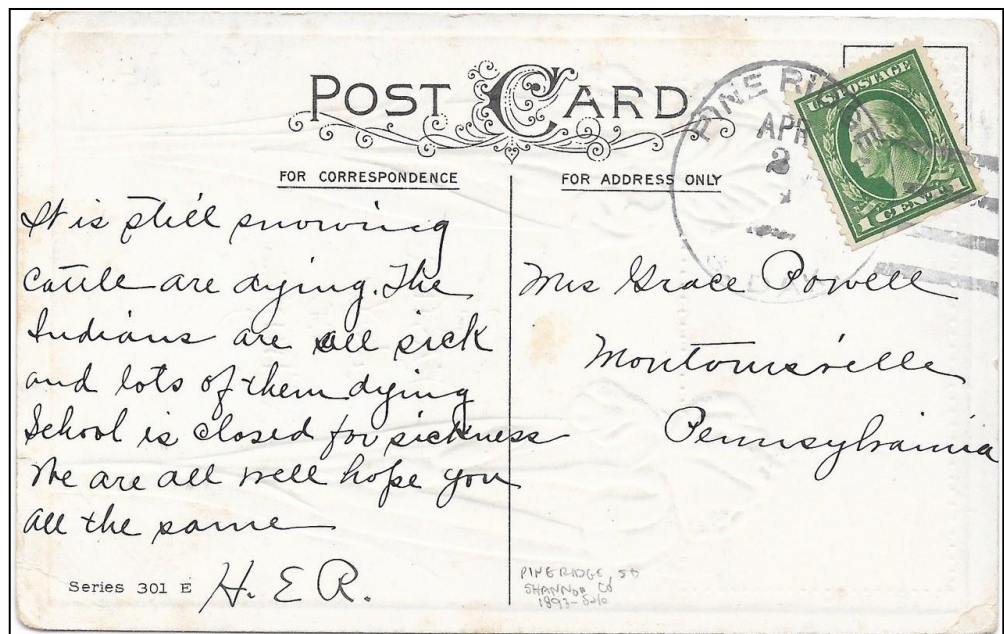 POST CARD
FOR CORRESPONDENCE
FOR ADDRESS ONLY
PINE RIDGE
APR
2
U.S. POSTAGE
1 CENT 1
It is still snowing
cattle are dying. The
Indians are all sick
and lots of them dying
School is closed for sickness
We are all well hope you
all the same
H. E. R.
Mrs Grace Powell
Montoursville
Pennsylvainia
Series 301 E
PINE RIDGE, SD
SHANNON CO
1893-